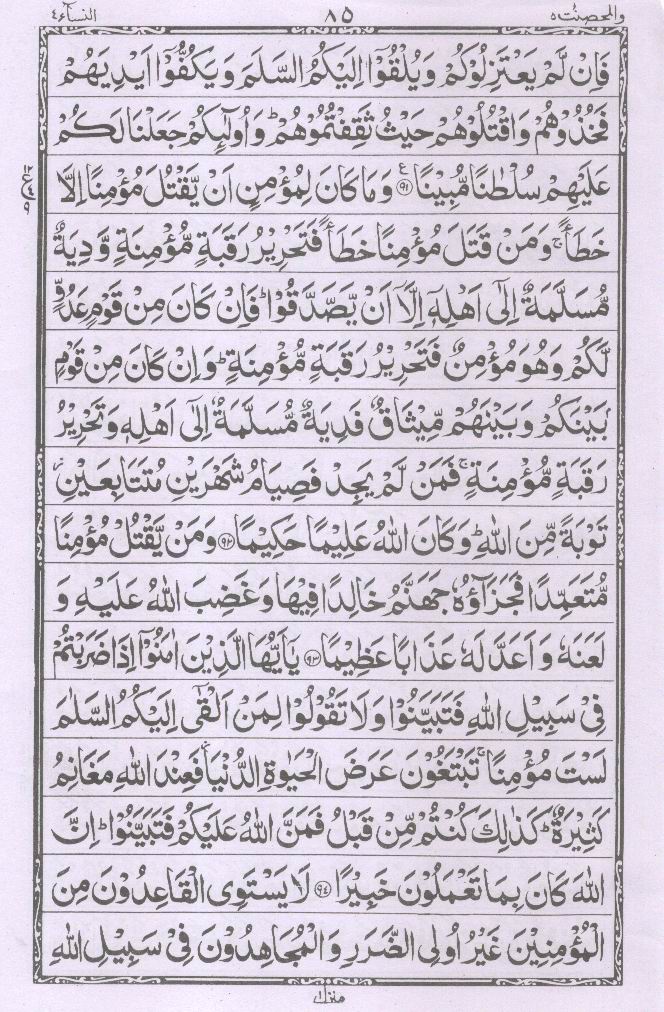 والمحصنت ٥ ٨٥ النسآء ٤
فَاِنْ لَّمْ يَعْتَزِلُوْكُمْ وَيُلْقُوْۤا اِلَيْكُمُ السَّلَمَ وَيَكُفُّوْۤا اَيْدِيَهُمْ
فَخُذُوْهُمْ وَاقْتُلُوْهُمْ حَيْثُ ثَقِفْتُمُوْهُمْ ؕ وَاُولٰٓئِكُمْ جَعَلْنَا لَكُمْ
عَلَيْهِمْ سُلْطٰنًا مُّبِيْنًا ﴿٩١﴾ ع وَمَا كَانَ لِمُؤْمِنٍ اَنْ يَّقْتُلَ مُؤْمِنًا اِلَّا
خَطَـًٔا ۚ وَمَنْ قَتَلَ مُؤْمِنًا خَطَـًٔا فَتَحْرِيْرُ رَقَبَةٍ مُّؤْمِنَةٍ وَّدِيَةٌ
مُّسَلَّمَةٌ اِلٰٓى اَهْلِهٖۤ اِلَّاۤ اَنْ يَّصَّدَّقُوْا ؕ فَاِنْ كَانَ مِنْ قَوْمٍ عَدُوٍّ
لَّكُمْ وَهُوَ مُؤْمِنٌ فَتَحْرِيْرُ رَقَبَةٍ مُّؤْمِنَةٍ ؕ وَاِنْ كَانَ مِنْ قَوْمٍۭ
بَيْنَكُمْ وَبَيْنَهُمْ مِّيْثَاقٌ فَدِيَةٌ مُّسَلَّمَةٌ اِلٰٓى اَهْلِهٖ وَتَحْرِيْرُ
رَقَبَةٍ مُّؤْمِنَةٍ ۚ فَمَنْ لَّمْ يَجِدْ فَصِيَامُ شَهْرَيْنِ مُتَتَابِعَيْنِ ؗ
تَوْبَةً مِّنَ اللّٰهِ ؕ وَكَانَ اللّٰهُ عَلِيْمًا حَكِيْمًا ﴿٩٢﴾ وَمَنْ يَّقْتُلْ مُؤْمِنًا
مُّتَعَمِّدًا فَجَزَآؤُهٗ جَهَنَّمُ خَالِدًا فِيْهَا وَغَضِبَ اللّٰهُ عَلَيْهِ وَ
لَعَنَهٗ وَاَعَدَّ لَهٗ عَذَابًا عَظِيْمًا ﴿٩٣﴾ يٰۤاَيُّهَا الَّذِيْنَ اٰمَنُوْۤا اِذَا ضَرَبْتُمْ
فِيْ سَبِيْلِ اللّٰهِ فَتَبَيَّنُوْا وَلَا تَقُوْلُوْا لِمَنْ اَلْقٰۤى اِلَيْكُمُ السَّلٰمَ
لَسْتَ مُؤْمِنًا ۚ تَبْتَغُوْنَ عَرَضَ الْحَيٰوةِ الدُّنْيَا ؗ فَعِنْدَ اللّٰهِ مَغَانِمُ
كَثِيْرَةٌ ؕ كَذٰلِكَ كُنْتُمْ مِّنْ قَبْلُ فَمَنَّ اللّٰهُ عَلَيْكُمْ فَتَبَيَّنُوْا ؕ اِنَّ
اللّٰهَ كَانَ بِمَا تَعْمَلُوْنَ خَبِيْرًا ﴿٩٤﴾ لَا يَسْتَوِى الْقَاعِدُوْنَ مِنَ
الْمُؤْمِنِيْنَ غَيْرُ اُولِى الضَّرَرِ وَالْمُجَاهِدُوْنَ فِيْ سَبِيْلِ اللّٰهِ
منزل ١